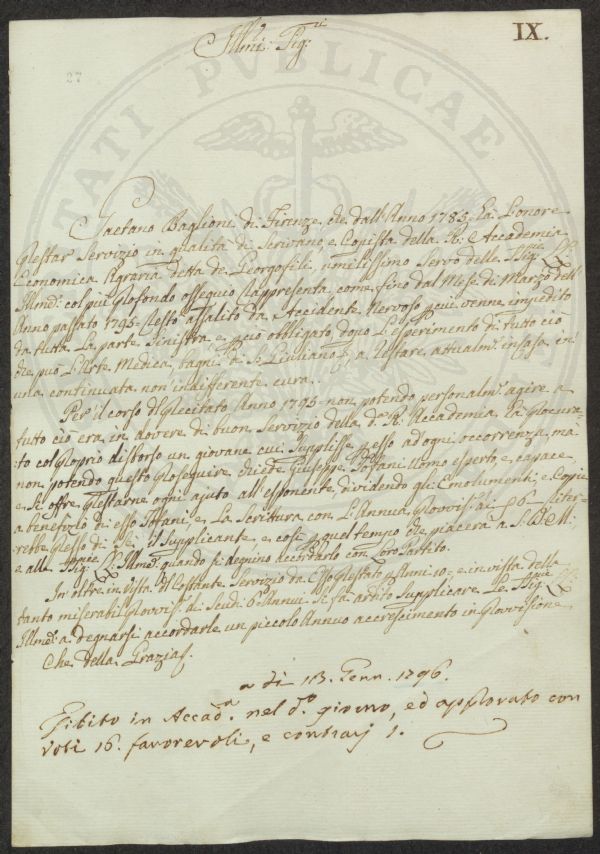 IX.
Ill.mi Sig.ri
27
PROSPERITATI PVBLICAE
Gaetano Baglioni di Firenze, che dall'Anno 1785. ha l'onore
Prestar Servizio in qualità di Scrivano, e Copista della R. Accademia
Economica Agraria detta de Georgofili, umilissimo Servo delle Sig.rie LL.
Illme. col più profondo ossequio rappresenta come fino dal Mese di Marzo dell'
Anno passato 1795. restò assalito da Accidente Nervoso, p cui venne impedito
da tutta la parte Sinistra, e p ciò obbligato dopo l'esperimento di tutto ciò
che può l'Arte Medica, bagni di S. Giuliano p. a restare attualm.e in casa, in
una continuata non indiferente cura.
Per il corso del precitato Anno 1795. non potendo personalm.e agire a
tutto ciò era in dovere di buon Servizio della d.a R. Accademia, ha procura-
to col proprio disborso un giovane cui supplisse p esso ad ogni occorrenza, mà
non potendo questo proseguire, chiede Giuseppe Tofani Uomo esperto, e capace
e si offre prestarne ogni ajuto all'esponente, dividendo gli Emolumenti, e Copie
a benefizio di esso Tofani, e la Scrittura con l'Annua Provvis.e di 6 riter-
rebbe presso di Se il Supplicante, e così p quel tempo che piacerà a S. D. M:
e alle Sig.rie LL. Illme. quando si degnino accordarlo con loro Partito.
In oltre in vista del Costante Servizio da Esso prestato p Anni 10. e in vista della
tanto miserabil Provvis.e di Scudi 6. Annui, si fà ardito Supplicare le Sig.rie LL.
Illme. a degnarsi accordarle un piccolo Annuo accrescimento in Provvisione
Che della Grazia p.
a dì 13. Genn. 1796.
Esibito in Accad.a nel d.o giorno, ed approvato con
voti 16. favorevoli, e contrarj 1.